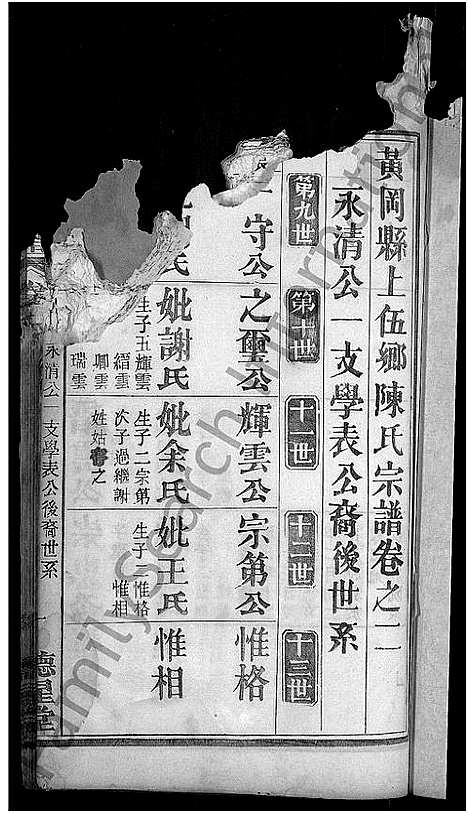 黃岡縣上伍鄉陳氏宗譜卷之二
永清公一支學表公裔後世系
第九世 第十世 十一世 十二世 十三世
守公 之璽公 輝雲公 宗第公 惟格
氏 妣謝氏 妣余氏 妣王氏 惟相
生子五輝雲
縉雲
卿雲
瑞雲
生子二宗第
次子過繼謝
姓姑
之
生子二惟格
惟相
永清公一支學表公後裔世系
德星堂
FamilySearch International